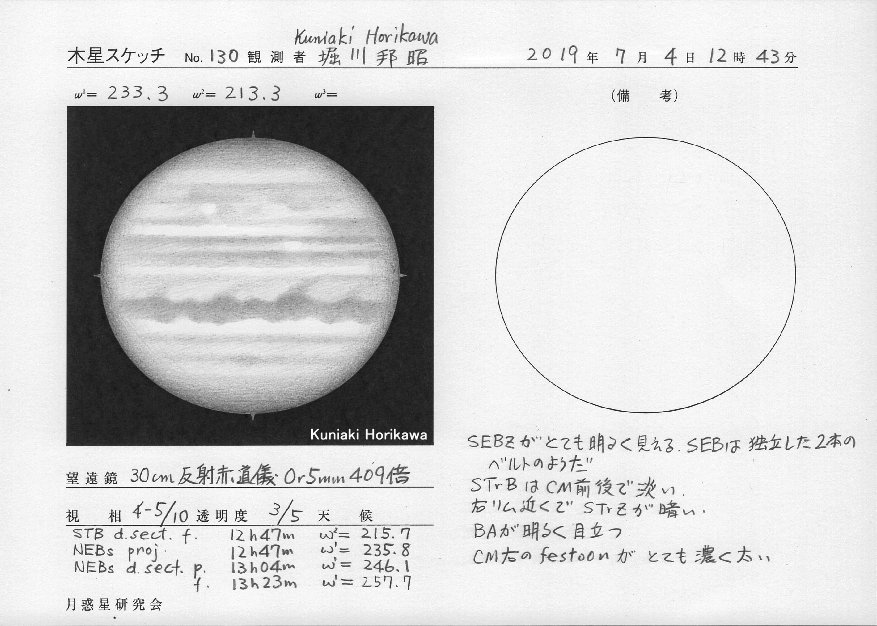 Kuniaki Horikawa
木星スケッチ No. 130 観測者 堀川邦昭 2019年 7月 4日 12時 43分
ω¹= 233.3 ω²= 213.3 ω³=
(備 考)
Kuniaki Horikawa
SEBZがとても明るく見える. SEBは独立した2本の
ベルトのようだ
STrBはCM前後で淡い.
右リム近くでSTrZが暗い.
BAが明るく目立つ
CM右のfestoonがとても濃く太い
望遠鏡 30cm反射赤道儀 Or5mm 409倍
視 相 4-5/10 透明度 3/5 天 候
STB d.sect. f. 12h47m ω²= 215.7
NEBs proj. 12h47m ω¹= 235.8
NEBs d.sect. p. 13h04m ω¹= 246.1
f. 13h23m ω¹= 257.7
月惑星研究会